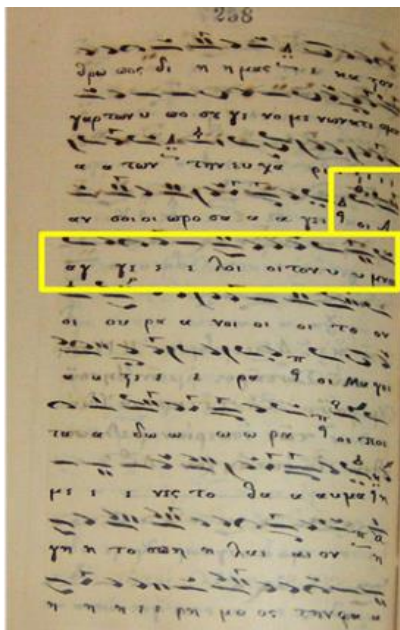 258
θρω πος δι η η μας ε κα τον
γαρ των υ πο σȣ γε νο με νων κτι σμα
α α των την ευ χα ρι
αν σοι οι προ σα α α γει οι Α
αγ γε ε ε λοι οι τον υ υ μνο
οι ου ρα α νοι οι οι το ον
α α ςε ε ε ρα οι Μα γοι
τα α δω ω ω ω ρα οι ποι
με ε ε νες το θα α αυ μα η
γη η το σπη η λαι αι ον η
η η η ε ε ρη μο ος την φα α